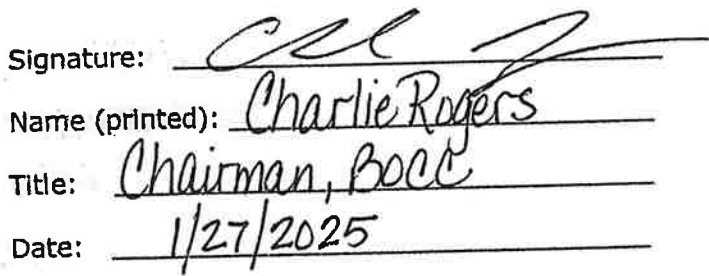 Signature:
Name (printed): Charlie Rogers
Title: Chairman, BOCC
Date: 1/27/2025